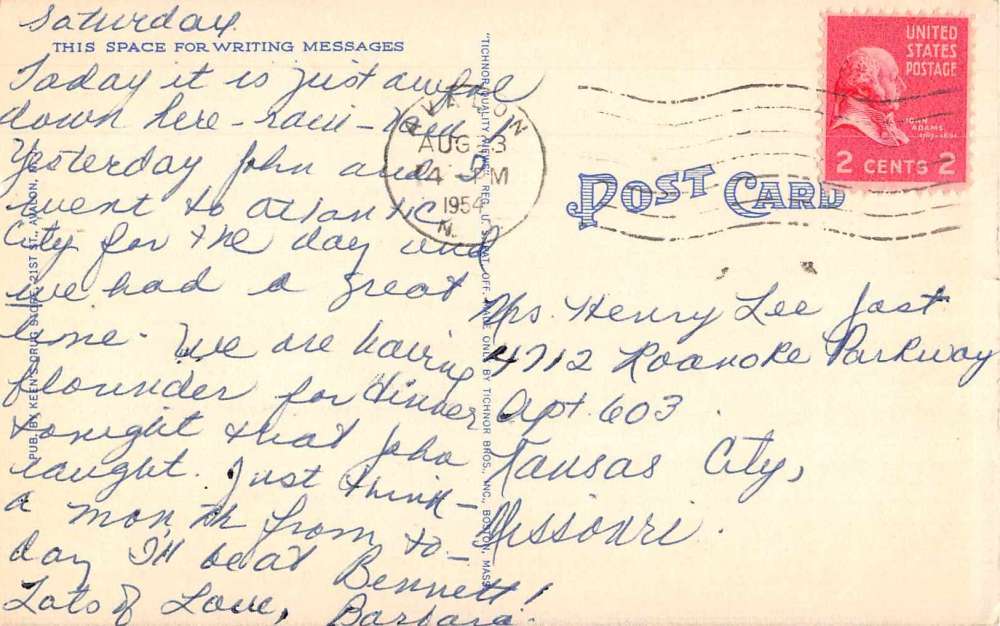 Saturday.
THIS SPACE FOR WRITING MESSAGES
Today it is just awful
down here - rain - rain!
Yesterday John and I
went to Atlantic
City for the day and
we had a great
time. We are having
flounder for dinner
tonight that John
caught. Just think -
a month from to-
day I'll be at Bennett!
Lots of Love, Barbara.
PUB. BY KEEN'S DRUG STORE, 21ST ST., AVALON, N.J.
"TICHNOR QUALITY VIEWS," REG. U. S. PAT. OFF. MADE ONLY BY TICHNOR BROS., INC., BOSTON, MASS.
AVALON
AUG 13
4 PM
1954
N.
UNITED
STATES
POSTAGE
JOHN
ADAMS
2 CENTS 2
POST CARD
Mrs. Henry Lee Jost
4712 Roanoke Parkway
Apt. 603
Kansas City,
Missouri.